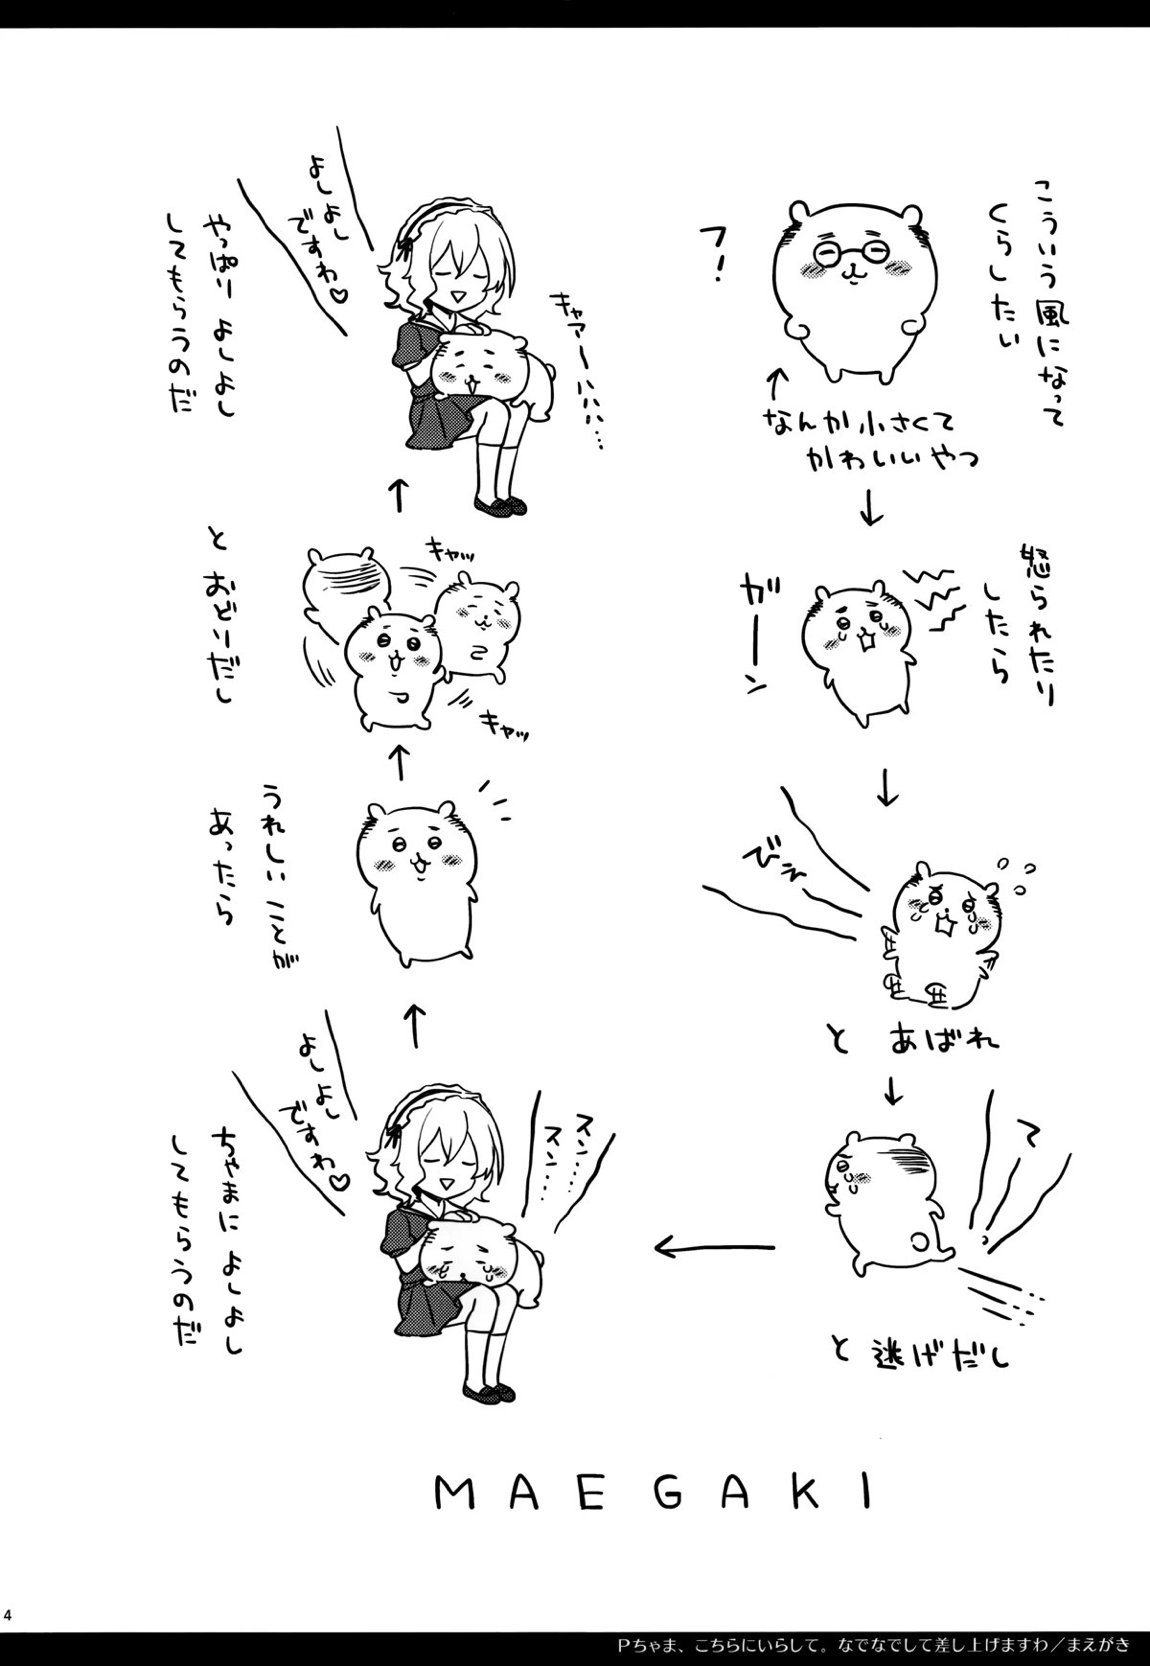 こういう風になって
くらしたい
フ!
なんか小さくて
かわいいやつ
怒られたり
したら
ガーン
びえ
と あばれ
て
と 逃げだし
スン……
スン……
よしよし
ですわ♡
ちゃまに よしよし
してもらうのだ
うれしい ことが
あったら
キャッ
キャッ
と おどりだし
キャアーハハハ…
よしよし
ですわ♡
やっぱり よしよし
してもらうのだ
MAEGAKI
4
Pちゃま、こちらにいらして。なでなでして差し上げますわ/まえがき